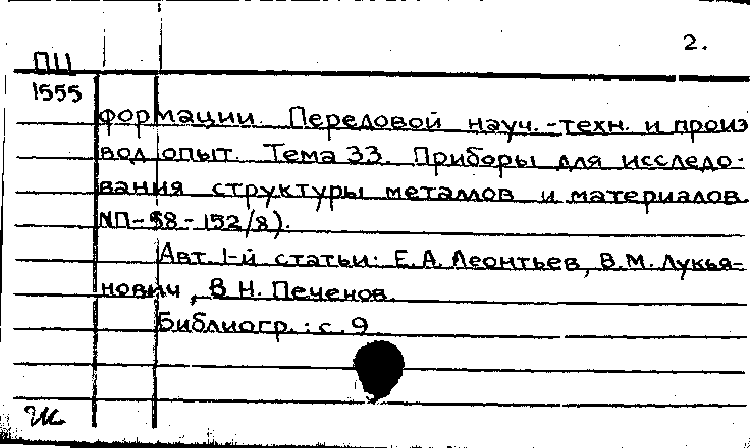 2.
ПЦ
1555
формации. Передовой науч.-техн. и произ
вод опыт. Тема 33. Приборы для исследо-
вания структуры металлов и материалов.
№П-58-152/8).
Авт. 1-й статьи: Е.А. Леонтьев, В.М. Лукья-
нович, В.Н. Печенов.
Библиогр.: с. 9